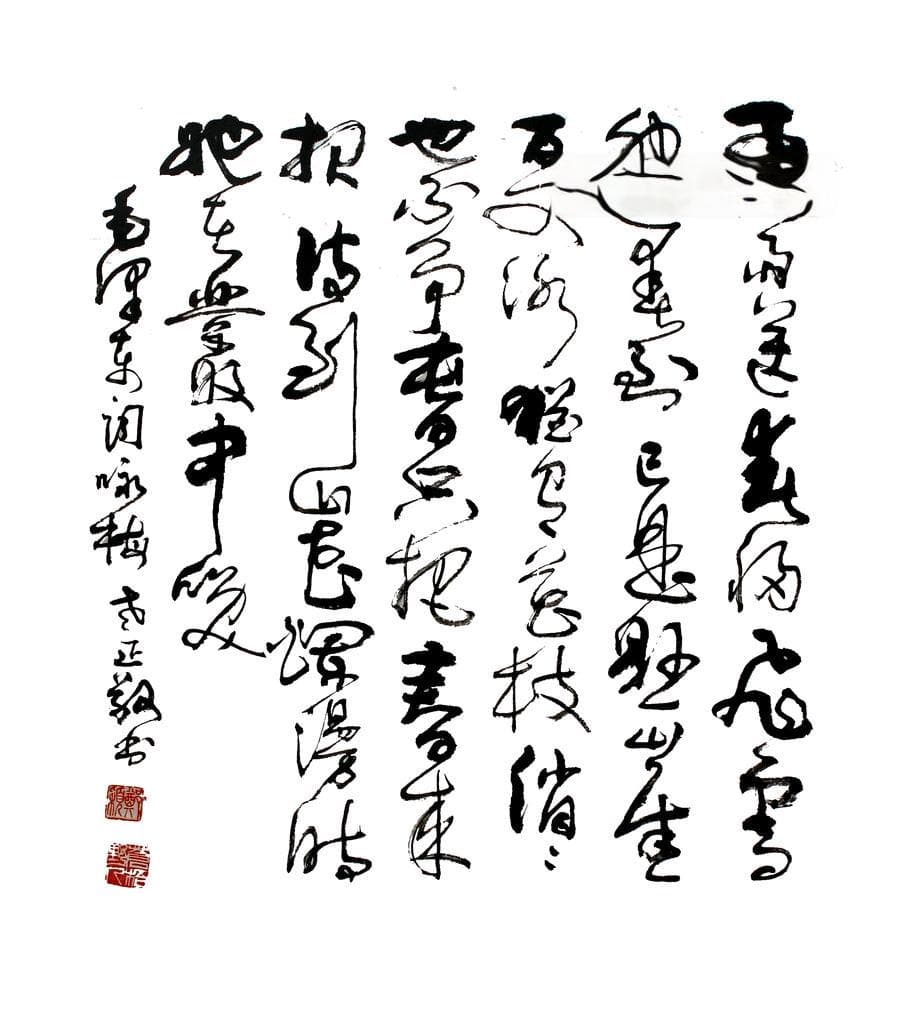 風雨送春归飛雪
迎春到已是悬崖
百丈冰犹有花枝俏〻
也不争春只把春来
报待到山花烂漫时
她在丛中笑
毛泽东词咏梅 正敬书